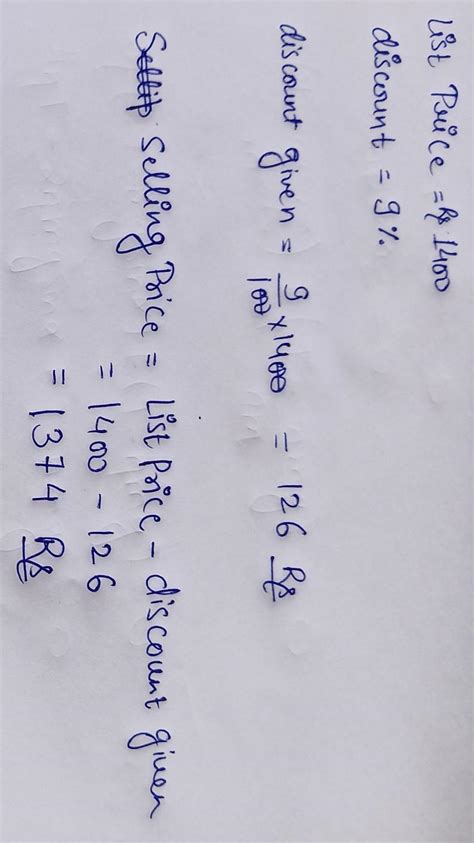 List Price = Rs 1400
discount = 9%
discount given = 9/100 x 1400 = 126 Rs
Sellip Selling Price = List Price - discount given
= 1400 - 126
= 1374 Rs